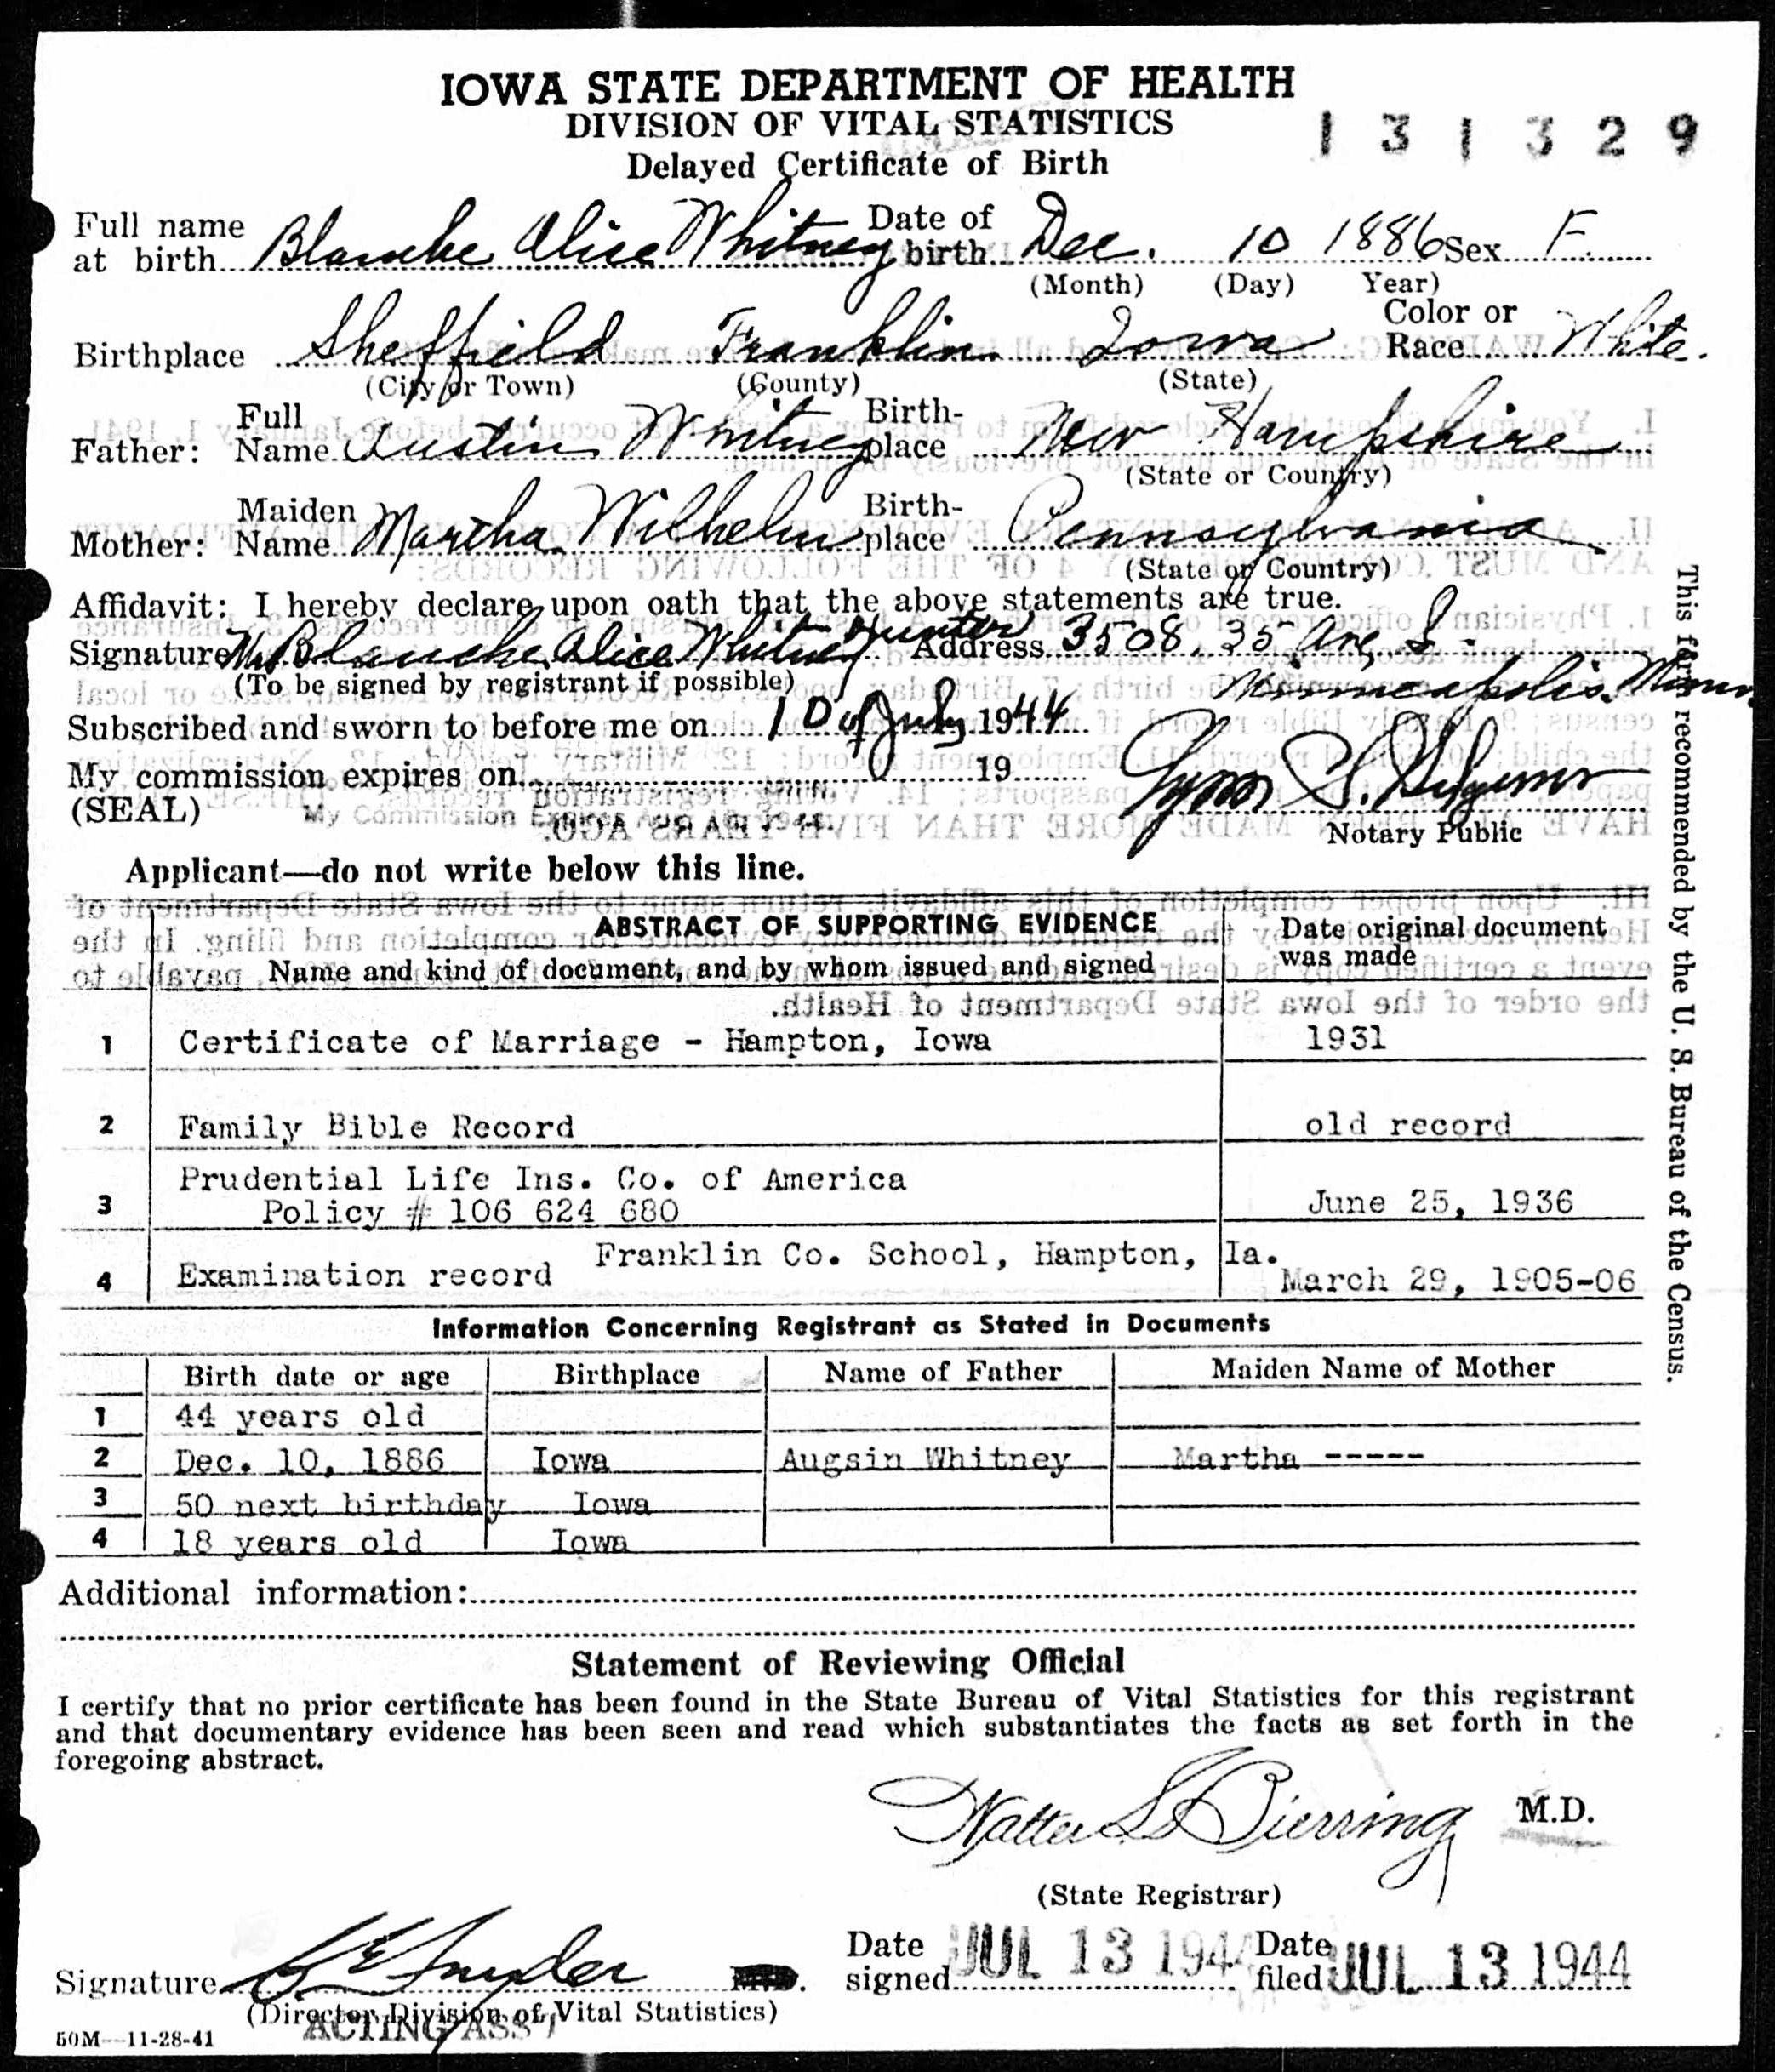 IOWA STATE DEPARTMENT OF HEALTH
DIVISION OF VITAL STATISTICS
131329
Delayed Certificate of Birth
Full name at birth Blanche Alice Whitney Date of birth Dec. 10 1886 Sex F.
(Month) (Day) Year)
Birthplace Sheffield Franklin Iowa Color or Race White.
(City or Town) (County) (State)
Father: Full Name Austin Whitney Birthplace New Hampshire
(State or Country)
Mother: Maiden Name Martha Wilhelm Birthplace Pennsylvania
(State or Country)
Affidavit: I hereby declare upon oath that the above statements are true.
Signature Mrs Blanche Alice Whitney Hunter Address 3508. 35 Ave, S.
(To be signed by registrant if possible) Minneapolis. Minn.
Subscribed and sworn to before me on 10 of July 1944
My commission expires on 19
(SEAL)
My Commission Expires
Notary Public
This form recommended by the U. S. Bureau of the Census.
Applicant—do not write below this line.
ABSTRACT OF SUPPORTING EVIDENCE Date original document
Name and kind of document, and by whom issued and signed was made
1 Certificate of Marriage - Hampton, Iowa 1931
2 Family Bible Record old record
3 Prudential Life Ins. Co. of America
Policy # 106 624 680 June 25, 1936
4 Examination record Franklin Co. School, Hampton, Ia. March 29, 1905-06
Information Concerning Registrant as Stated in Documents
Birth date or age Birthplace Name of Father Maiden Name of Mother
1 44 years old
2 Dec. 10, 1886 Iowa Augsin Whitney Martha -----
3 50 next birthday Iowa
4 18 years old Iowa
Additional information:
Statement of Reviewing Official
I certify that no prior certificate has been found in the State Bureau of Vital Statistics for this registrant
and that documentary evidence has been seen and read which substantiates the facts as set forth in the
foregoing abstract.
Walter L Bierring M.D.
(State Registrar)
Signature Snyder Date signed JUL 13 1944 Date filed JUL 13 1944
(Director Division of Vital Statistics)
ACTING ASS'T
50M—11-28-41